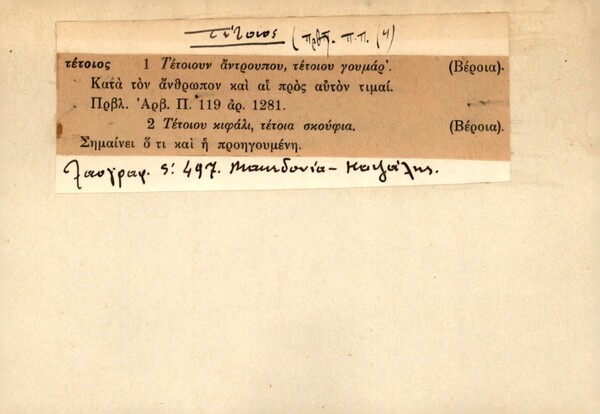 τέτοιος (πρβλ. π.π. (4)
τέτοιος 1 Τέτοιουν ἄντρουπου, τέτοιου γουμάρ'. (Βέροια).
Κατὰ τὸν ἄνθρωπον καὶ αἱ πρὸς αὐτὸν τιμαί.
Πρβλ. Ἀρβ. Π. 119 ἀρ. 1281.
2 Τέτοιου κιφάλι, τέτοια σκούφια. (Βέροια).
Σημαίνει ὅ τι καὶ ἡ προηγουμένη.
Λαογραφ. Ϛ' 497. Μακεδονία -